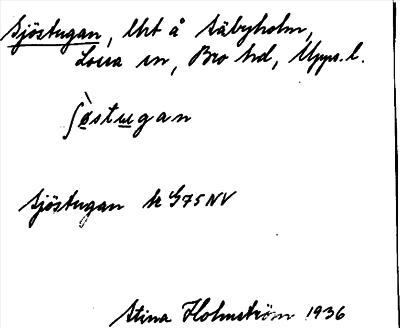 Sjöstugan, lht å Säbyholm,
Låssa sn, Bro hd, Upps. l.
ʃøstugan
Sjöstugan k G75NV
Stina Holmström 1936